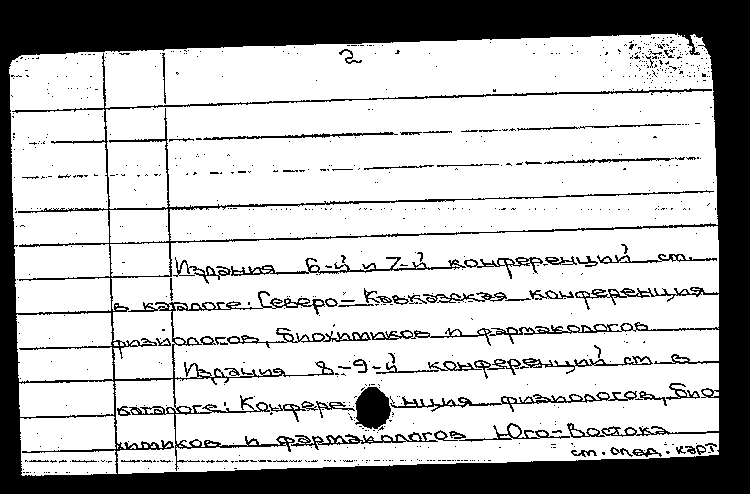 2
Издания 6-й и 7-й конференций см.
в каталоге: Северо-Кавказская конференция
физиологов, биохимиков и фармакологов
Издания 8-9-й конференций см. в
каталоге: Конференция физиологов, био-
химиков и фармакологов Юго-Востока
см. след. карт.